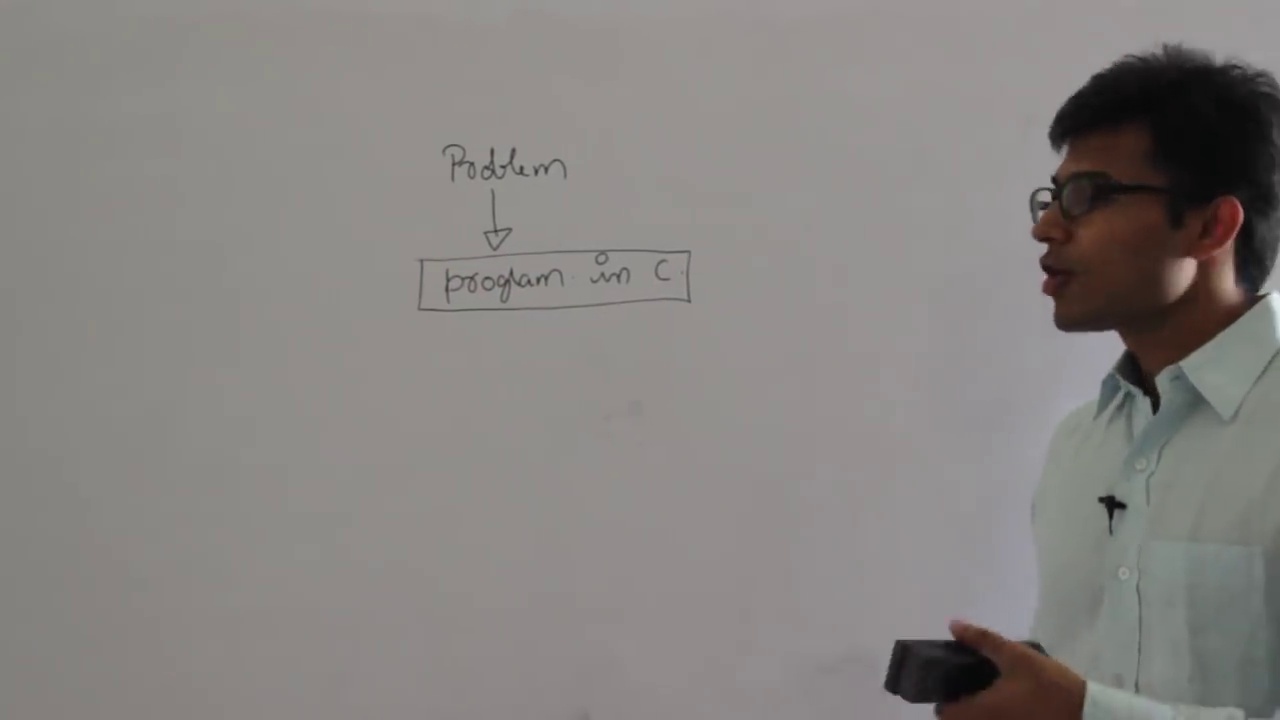 Problem
program in C